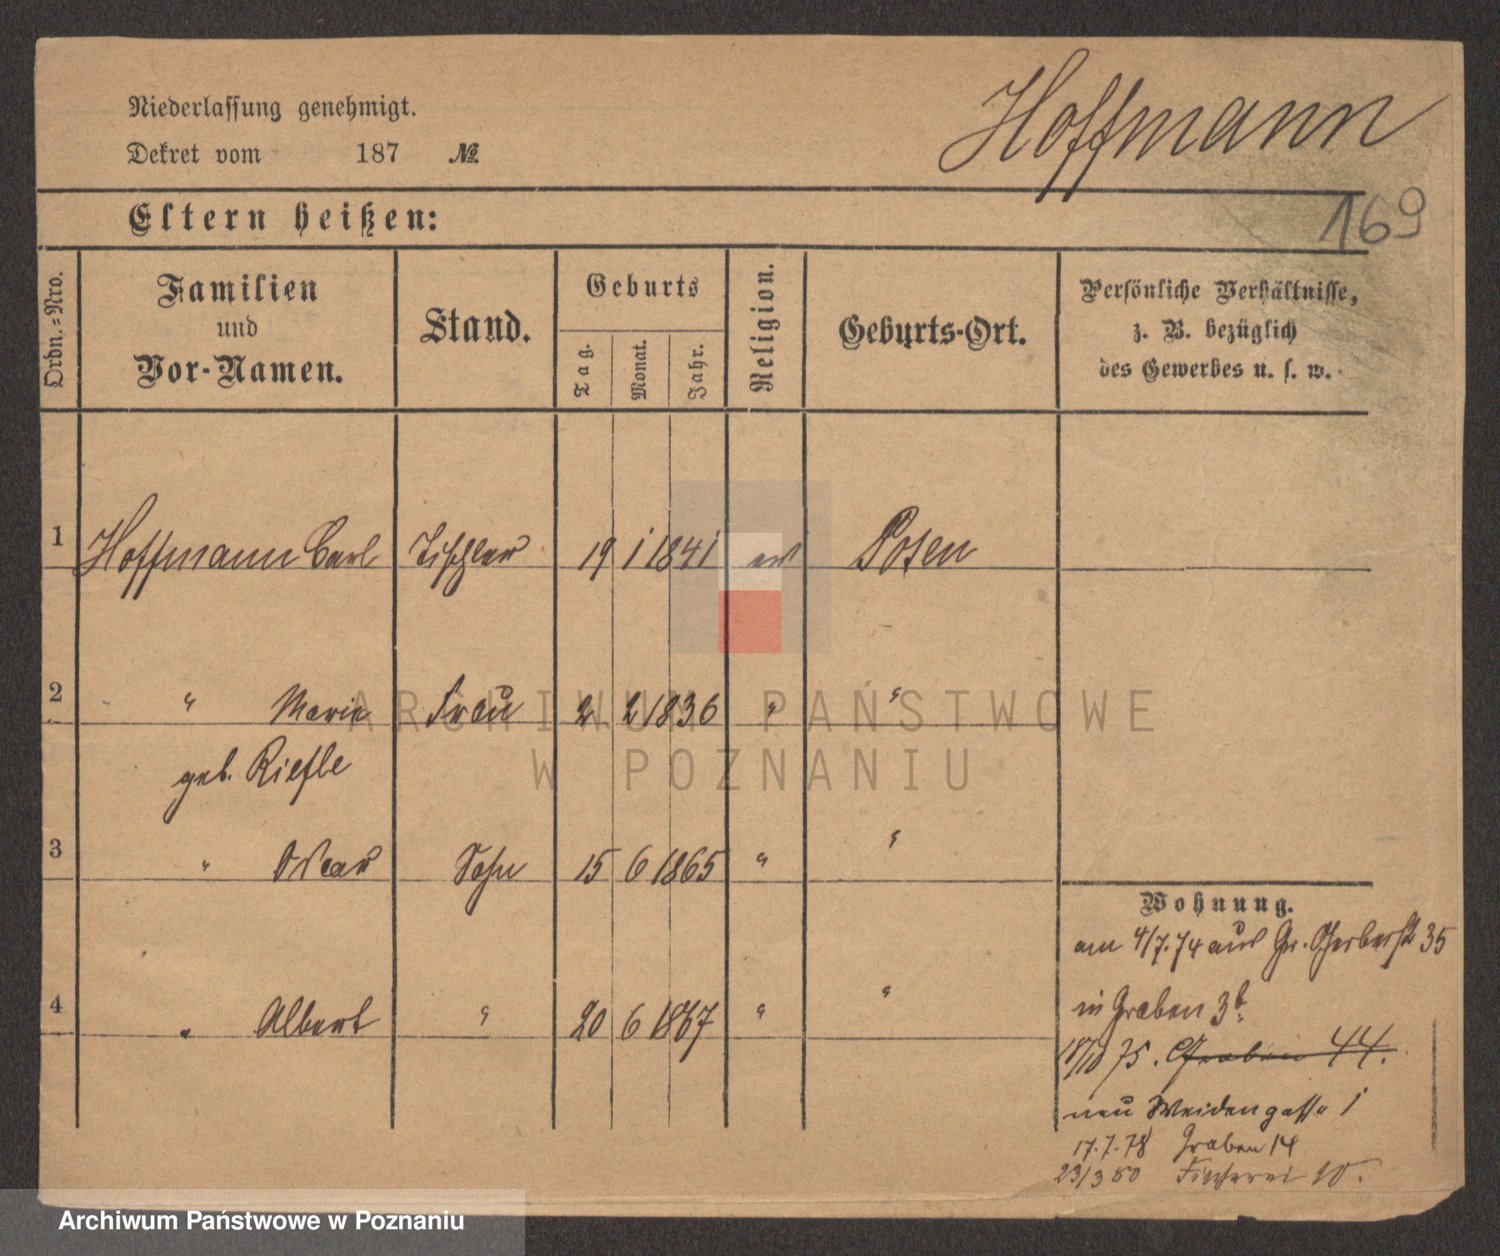 Niederlassung genehmigt.
Hoffmann
Dekret vom 187 №
169
Eltern heißen:
Ordn.=Nro.
Familien
und
Vor-Namen.
Stand.
Geburts
Tag.
Monat.
Jahr.
Religion.
Geburts-Ort.
Persönliche Verhältnisse,
z. B. bezüglich
des Gewerbes u. s. w.
1 Hoffmann Carl Tischler 19 1 1841 ev Posen
2 " Marie Frau 2 2 1836 " "
geb. Riefle
3 " Oscar Sohn 15 6 1865 " "
4 " Albert " 20 6 1867 " "
Wohnung.
am 4/7.74 aus Gr. Gerberstr 35
in Graben 3b.
18/10 75. Graben 44.
neu Weidengasse 1
17.7.78 Graben 14
23/3 80 Fischerei 10.
ARCHIWUM PAŃSTWOWE
W POZNANIU
Archiwum Państwowe w Poznaniu